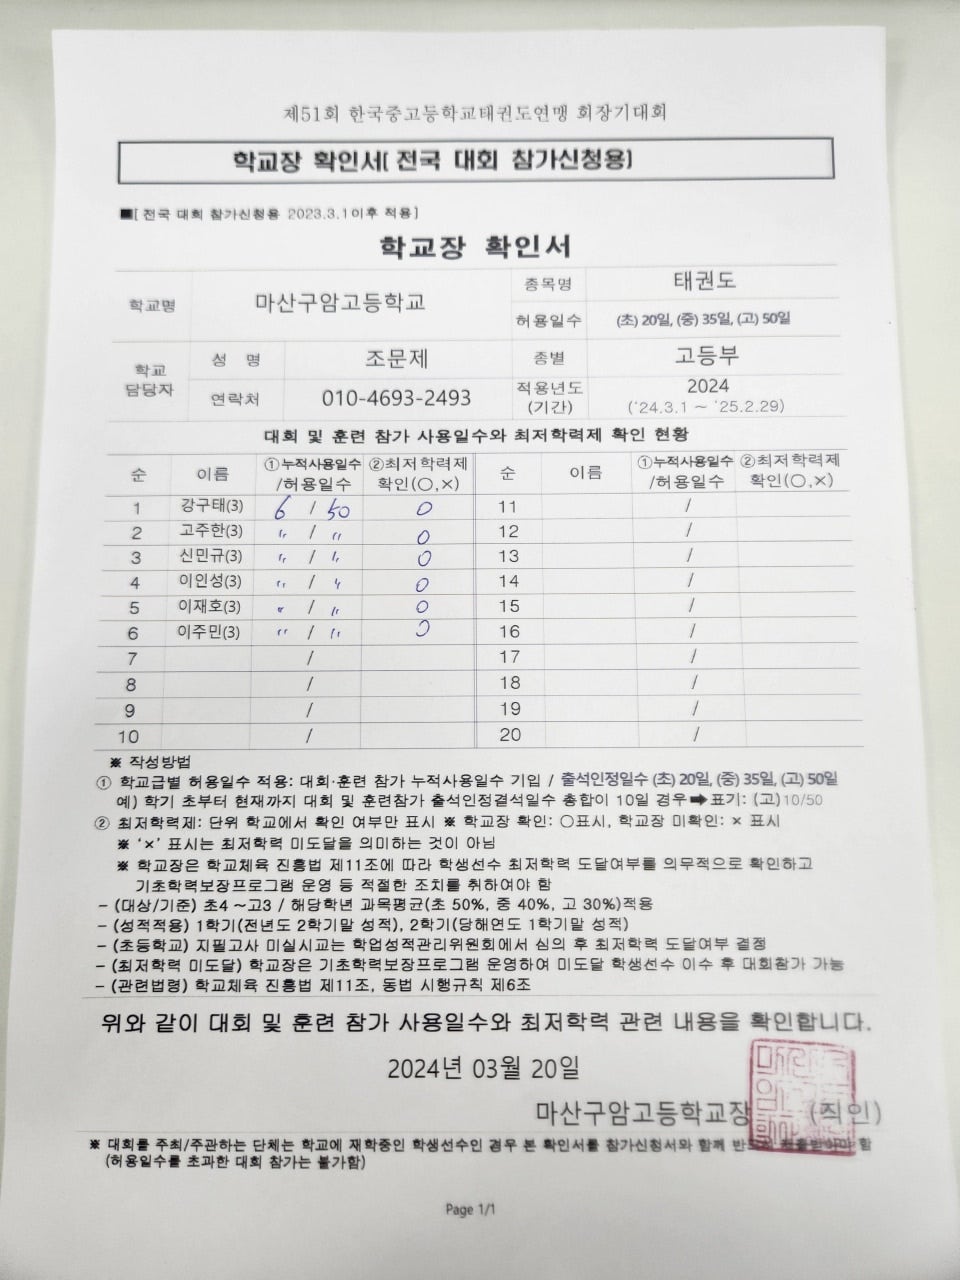 제51회 한국중고등학교태권도연맹 회장기대회
학교장 확인서[ 전국 대회 참가신청용]
■[ 전국 대회 참가신청용 2023.3.1이후 적용]
학교장 확인서
학교명 마산구암고등학교 종목명 태권도
허용일수 (초) 20일, (중) 35일, (고) 50일
학교 담당자 성 명 조문제 종별 고등부
연락처 010-4693-2493 적용년도 (기간) 2024 ('24.3.1 ~ '25.2.29)
대회 및 훈련 참가 사용일수와 최저학력제 확인 현황
순 이름 ①누적사용일수 /허용일수 ②최저학력제 확인(○,×) 순 이름 ①누적사용일수 /허용일수 ②최저학력제 확인(○,×)
1 강구태(3) 6 / 50 ○ 11 /
2 고주한(3) 〃 / 〃 ○ 12 /
3 신민규(3) 〃 / 〃 ○ 13 /
4 이인성(3) 〃 / 〃 ○ 14 /
5 이재호(3) 〃 / 〃 ○ 15 /
6 이주민(3) 〃 / 〃 ○ 16 /
7 / 17 /
8 / 18 /
9 / 19 /
10 / 20 /
※ 작성방법
① 학교급별 허용일수 적용: 대회·훈련 참가 누적사용일수 기입 / 출석인정일수 (초) 20일, (중) 35일, (고) 50일
예) 학기 초부터 현재까지 대회 및 훈련참가 출석인정결석일수 총합이 10일 경우➡표기: (고)10/50
② 최저학력제: 단위 학교에서 확인 여부만 표시 ※ 학교장 확인: ○표시, 학교장 미확인: × 표시
※ '×' 표시는 최저학력 미도달을 의미하는 것이 아님
※ 학교장은 학교체육 진흥법 제11조에 따라 학생선수 최저학력 도달여부를 의무적으로 확인하고
기초학력보장프로그램 운영 등 적절한 조치를 취하여야 함
- (대상/기준) 초4 ~고3 / 해당학년 과목평균(초 50%, 중 40%, 고 30%)적용
- (성적적용) 1학기(전년도 2학기말 성적), 2학기(당해연도 1학기말 성적)
- (초등학교) 지필고사 미실시교는 학업성적관리위원회에서 심의 후 최저학력 도달여부 결정
- (최저학력 미도달) 학교장은 기초학력보장프로그램 운영하여 미도달 학생선수 이수 후 대회참가 가능
- (관련법령) 학교체육 진흥법 제11조, 동법 시행규칙 제6조
위와 같이 대회 및 훈련 참가 사용일수와 최저학력 관련 내용을 확인합니다.
2024년 03월 20일
마산구암고등학교장 (직인)
※ 대회를 주최/주관하는 단체는 학교에 재학중인 학생선수인 경우 본 확인서를 참가신청서와 함께 반드시 제출받아야 함
(허용일수를 초과한 대회 참가는 불가함)
Page 1/1